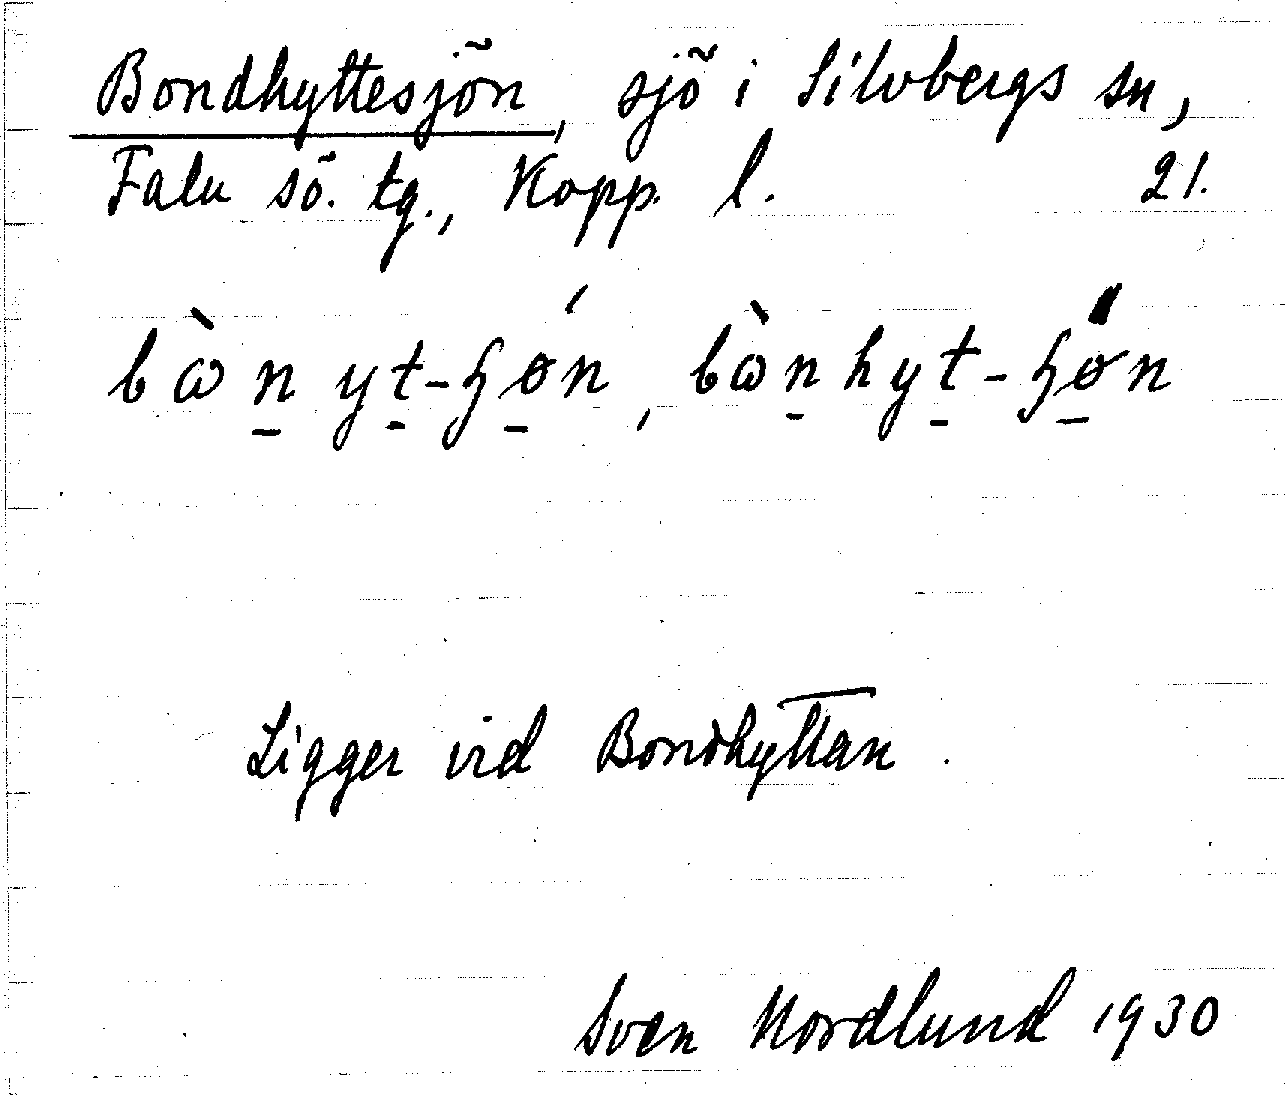 Bondhyttesjön, sjö i Silvbergs sn,
Falu sö. tg., Kopp. l. 21.
bὼn̠yt̠-ɧǿ̠n, bὼn̠hyt̠-ɧǿ̠n
Ligger vid Bondhyttan.
Sven Nordlund 1930